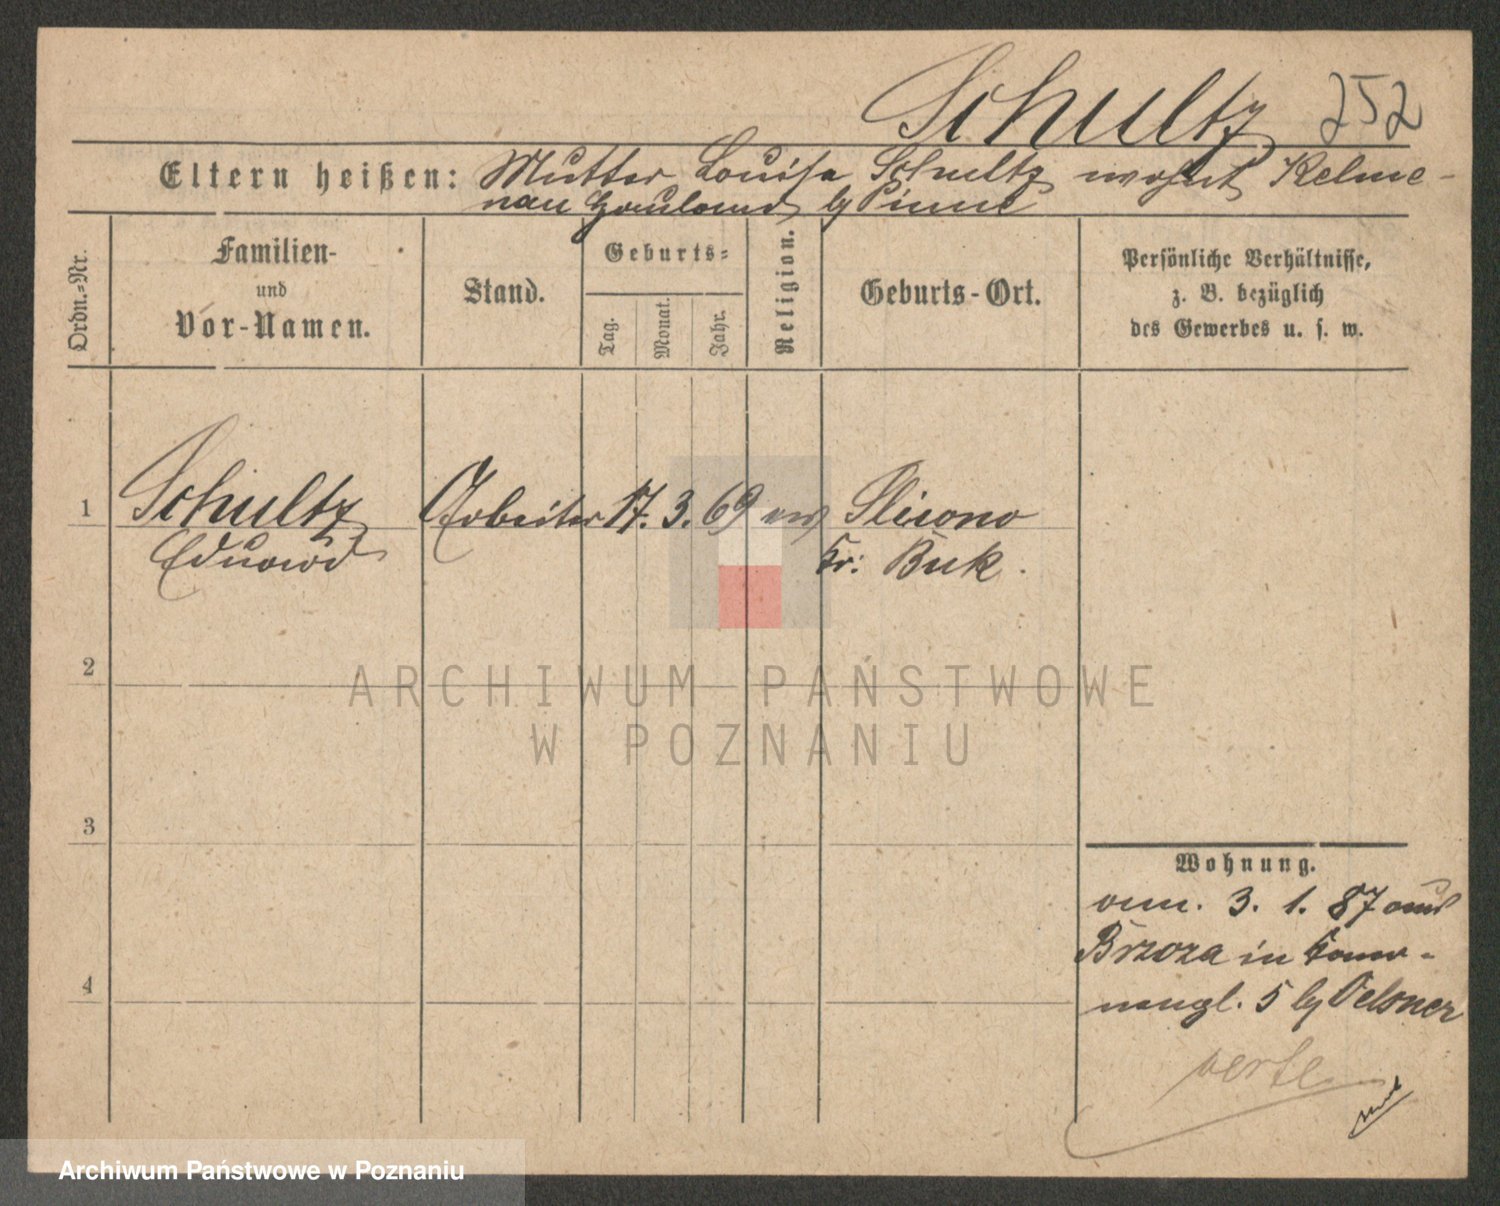 Schultz 252
Eltern heißen: Mutter Louise Schultz wohnt Kelme-
nau Hauland b/ Pinne
Ordn.-Nr.
Familien-
und
Vor-Namen.
Stand.
Geburts-
Tag.
Monat.
Jahr.
Religion.
Geburts-Ort.
Persönliche Verhältnisse,
z. B. bezüglich
des Gewerbes u. s. w.
1 Schultz Arbeiter 17. 3. 69 ev Sliwno
Eduard Kr: Buk.
2
3
4
Wohnung.
3. 1. 87
Brzoza in
5 b/ Pelsner
verte
ARCHIWUM PAŃSTWOWE
W POZNANIU
Archiwum Państwowe w Poznaniu